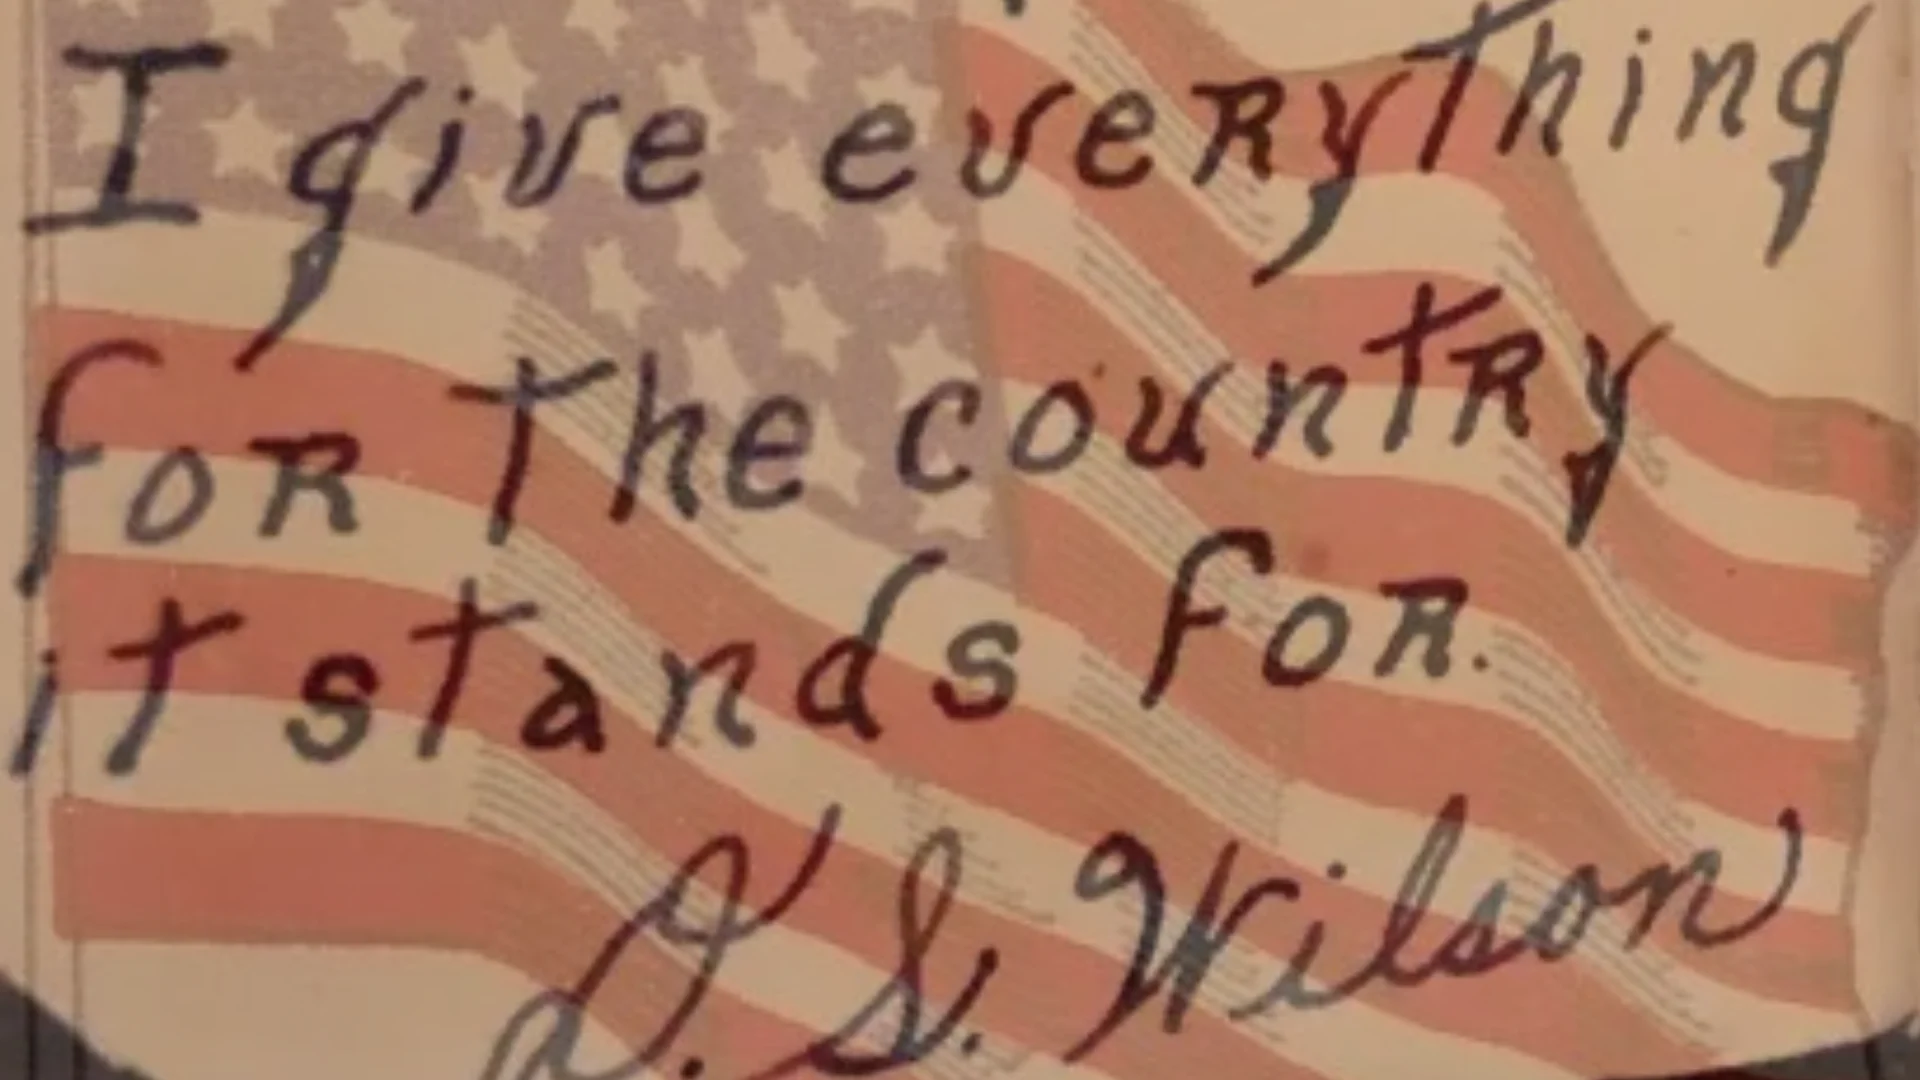 I give everything
for the country
it stands for.
D. S. Wilson